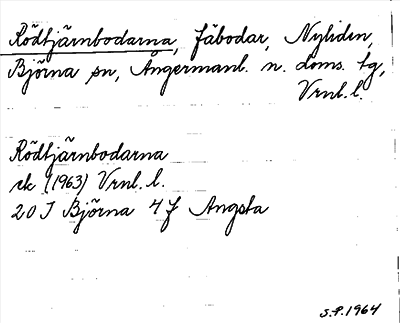 Rödtjärnbodarna, fäbodar, Nyliden,
Björna sn, Ångermanl. n. doms. tg,
Vrnl. l.
Rödtjärnbodarna
rk (1963) Vrnl. l.
20 J Björna 4 f Angsta
S.P. 1964